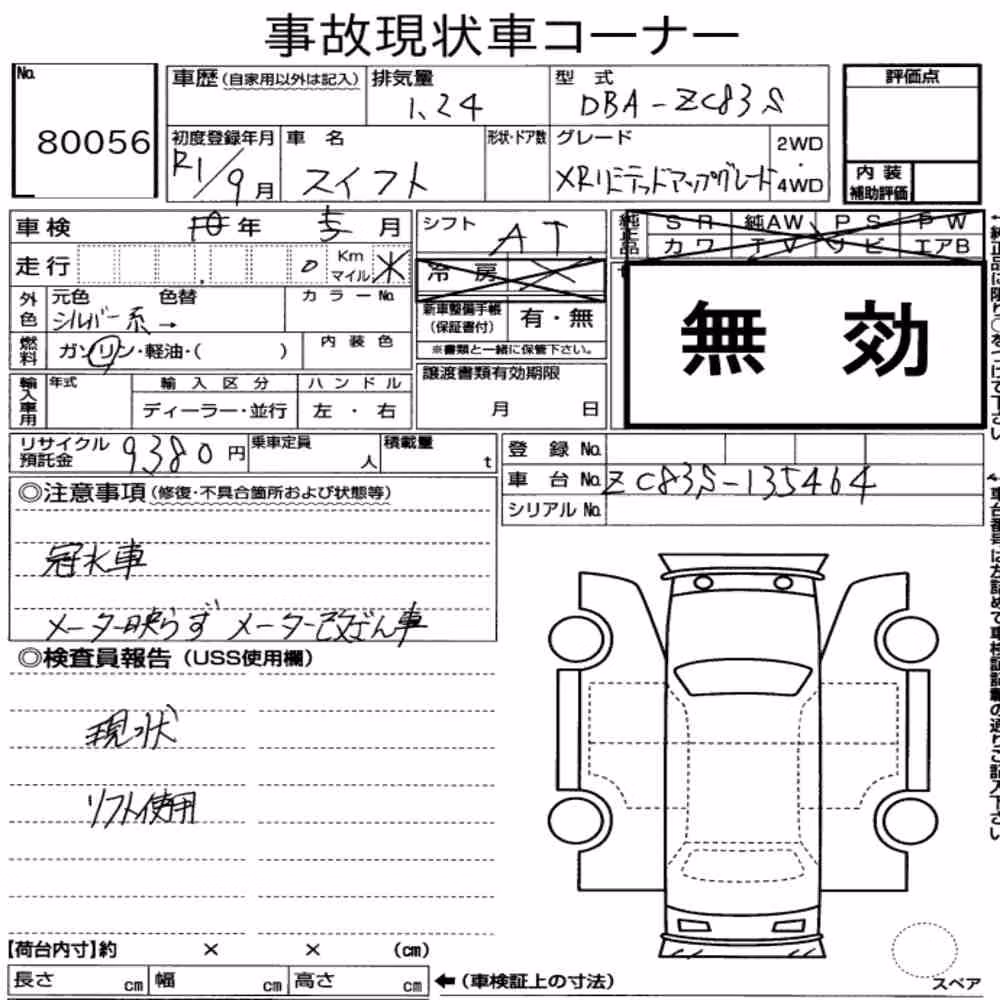 事故現状車コーナー
No. 80056
車歴(自家用以外は記入)
排気量 1.24
型式 DBA-ZC83S
評価点
初度登録年月 R1/9月
車名 スイフト
形状・ドア数
グレード XRリミテッドアップグレード
2WD・4WD
内装補助評価
車検 年 月
シフト AT
純正品 SR 純AW PS PW
カワ TV ナビ エアB
走行 0 Km マイル ※
冷房
外色 元色 シルバー系→ 色替 カラーNo.
新車整備手帳(保証書付) 有・無
※書類と一緒に保管下さい。
無効
燃料 ガソリン・軽油・( )
内装色
輸入車用 年式 輸入区分 ハンドル
ディーラー・並行 左・右
譲渡書類有効期限
月 日
リサイクル預託金 9380円
乗車定員 人
積載量 t
登録No.
車台No. ZC83S-135464
シリアルNo.
◎注意事項(修復・不具合箇所および状態等)
冠水車
メーター映らず メーター改ざん車
◎検査員報告(USS使用欄)
現状
リフト使用
【荷台内寸】約 × × (cm)
長さ cm 幅 cm 高さ cm
←(車検証上の寸法)
スペア
←純正品に限り○をつけて下さい
←車台番号は左詰めで車検証記載の通りご記入下さい